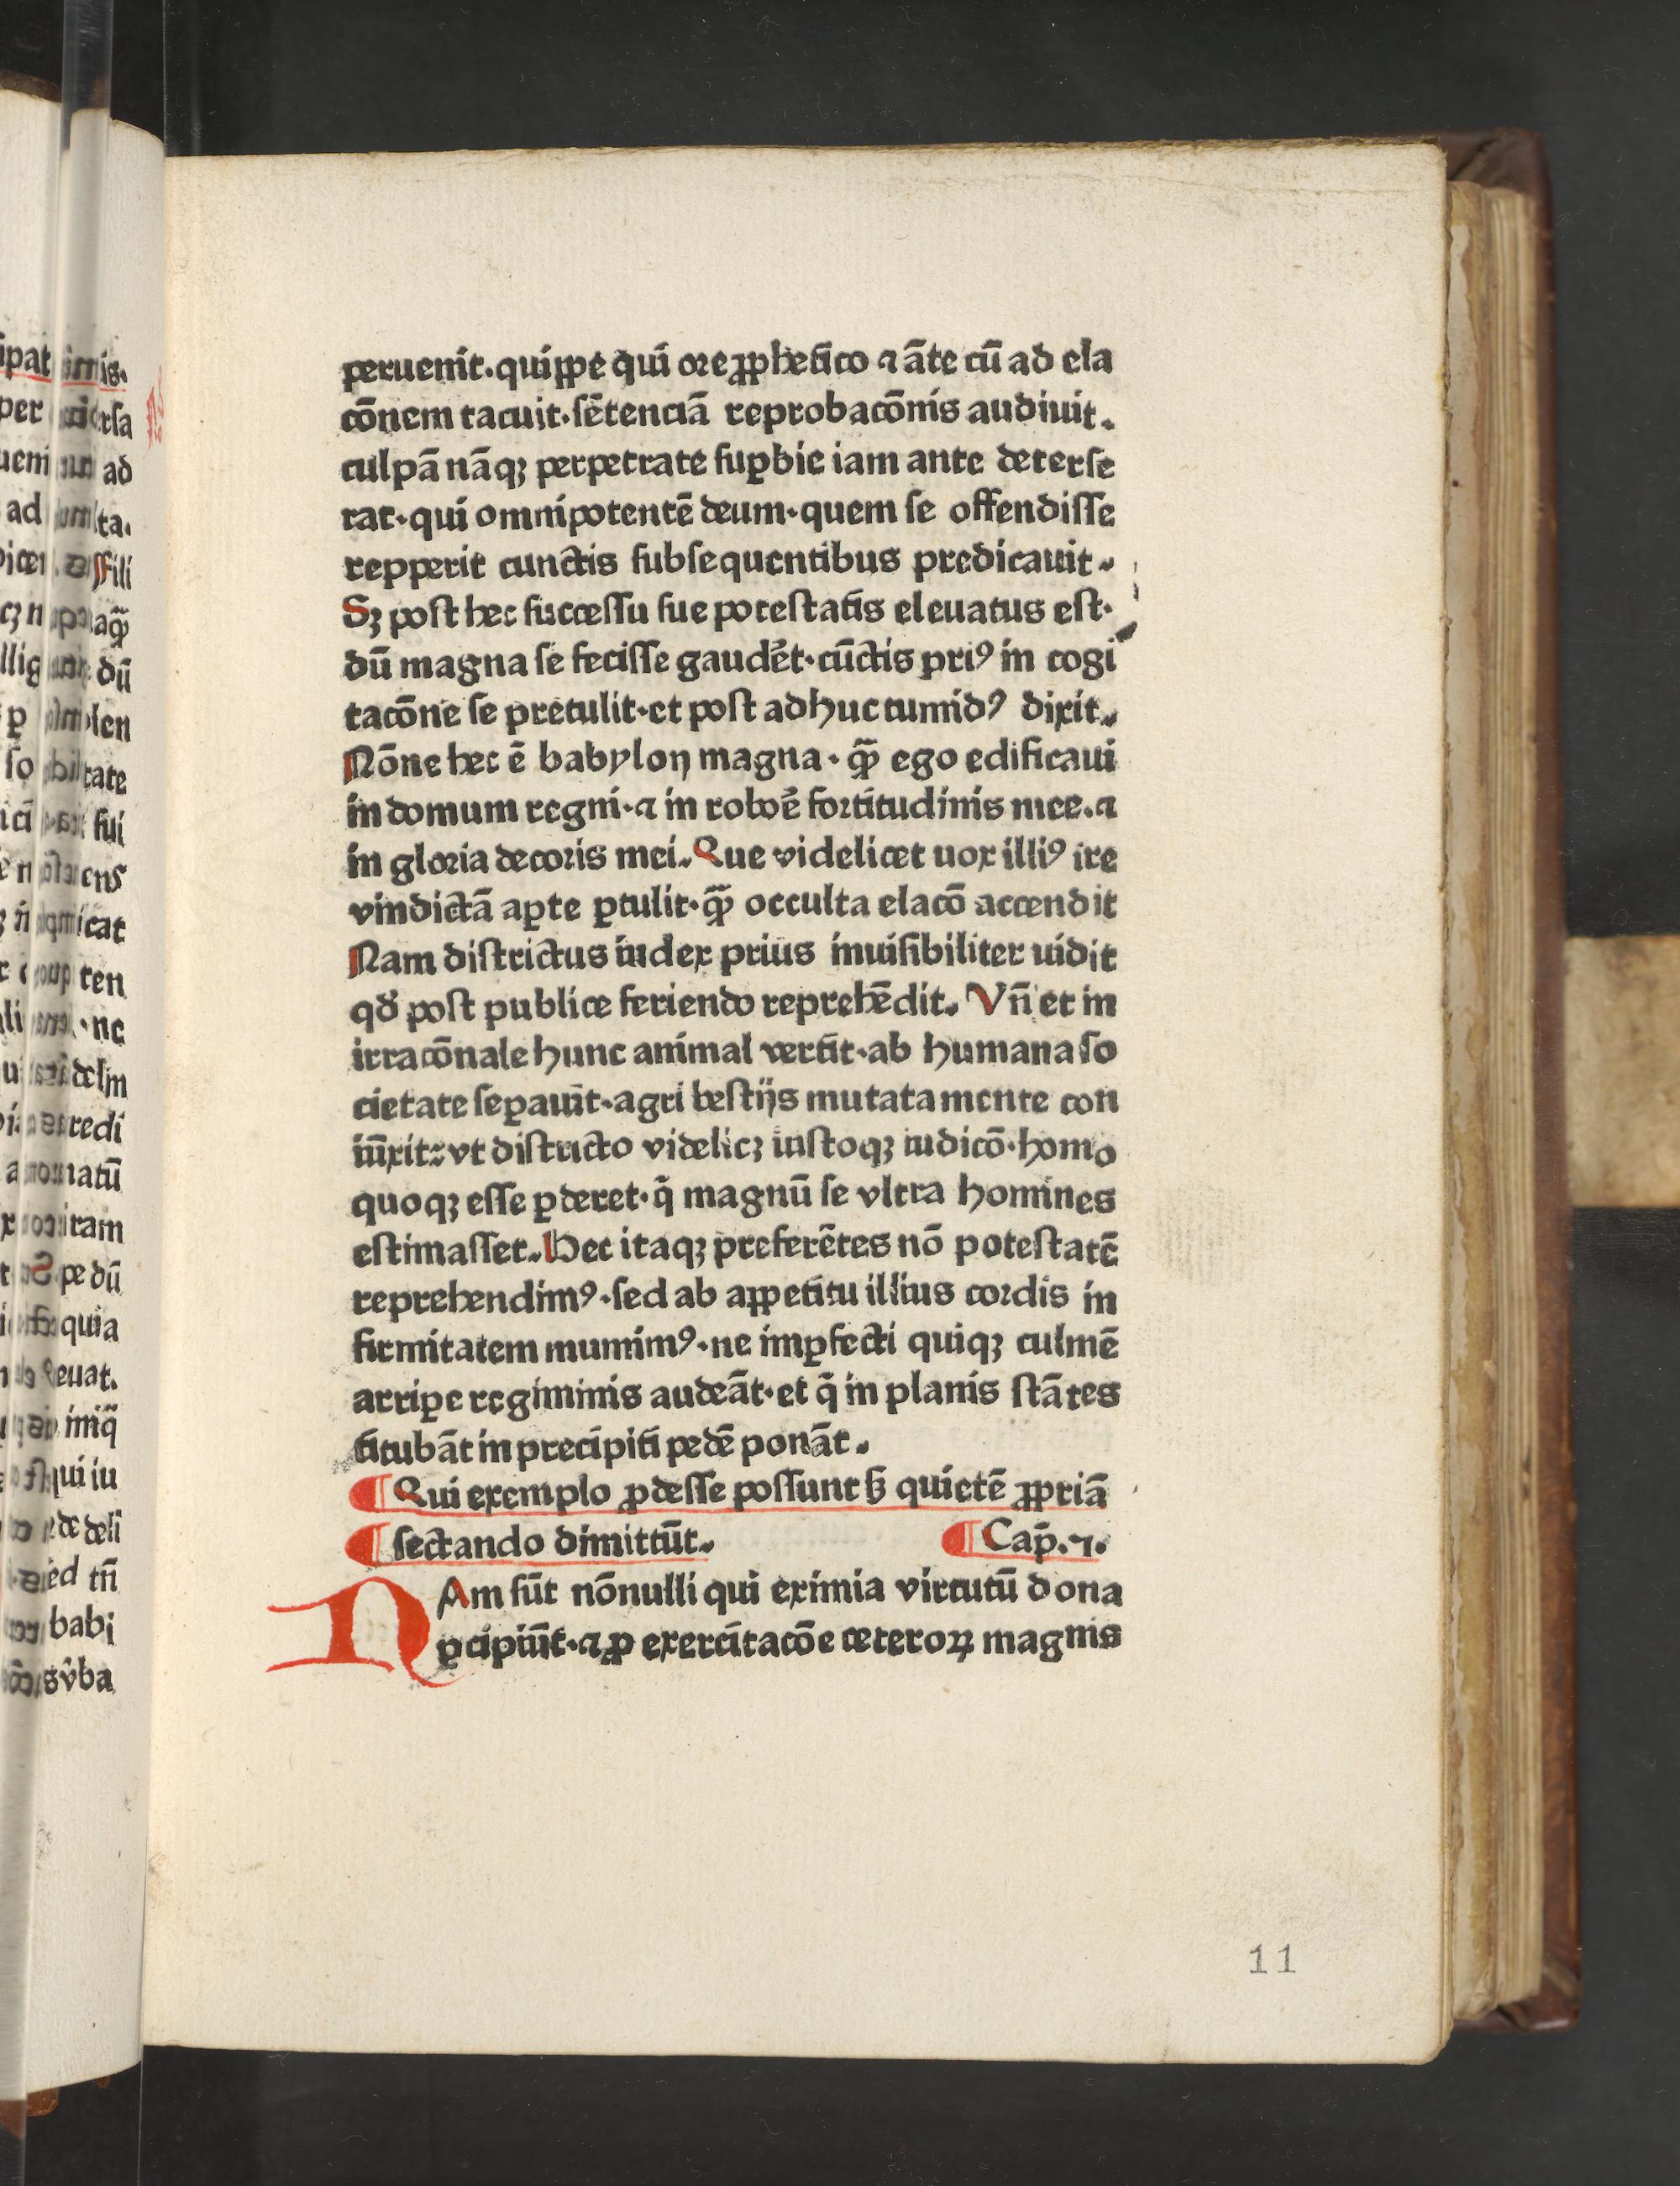 peruenit·quippe qui ore ꝓphetico ⁊ ãte cũ ad ela
cõnem tacuit·sẽtenciã reprobacõnis audiuit.
culpã nãqꝫ perpetrate suꝑbie iam ante deterse
rat·qui omnipotentẽ deum·quem se offendisse
repperit cunctis subsequentibus predicauit.
Sꝫ post hec successu sue potestatis eleuatus est·
dũ magna se fecisse gaudẽt·cũctis priꝰ in cogi
tacõne se pretulit·et post adhuc tumidꝰ dixit.
Nõne hec ẽ babylon magna·quã ego edificaui
in domum regni·⁊ in roboẽ fortitudinis mee.⁊
in gloria decoris mei. Que videlicet uox illiꝰ ire
vindictã aꝑte ꝑtulit·quã occulta elacõ accendit
Nam districtus iudex prius inuisibiliter uidit
qđ post publice feriendo reprehẽdit. Vñ et in
irracõnale hunc animal vertit·ab humana so
cietate seꝑauit·agri bestijs mutata mente con
iũxit:vt districto videlicꝫ iustoqꝫ iudicõ·homo
quoqꝫ esse ꝑderet·q̃ magnũ se vltra homines
estimasset. Hec itaqꝫ preferẽtes nõ potestatẽ
reprehendimꝰ·sed ab appetitu illius cordis in
firmitatem munimꝰ·ne imꝑfecti quiqꝫ culmẽ
arriꝑe regiminis audeãt·et q̃ in planis stãtes
titubãt in precipiti pedẽ ponãt.
¶ Qui exemplo ꝓdesse possunt sꝫ quietẽ ꝓpriã
¶ sectando dimittũt. ¶ Cap̃.⁊.
NAm sũt nõnulli qui eximia virtutũ dona
ꝑcipiũt·⁊ ꝓ exercitacõe ceteroꝝ magnis
11